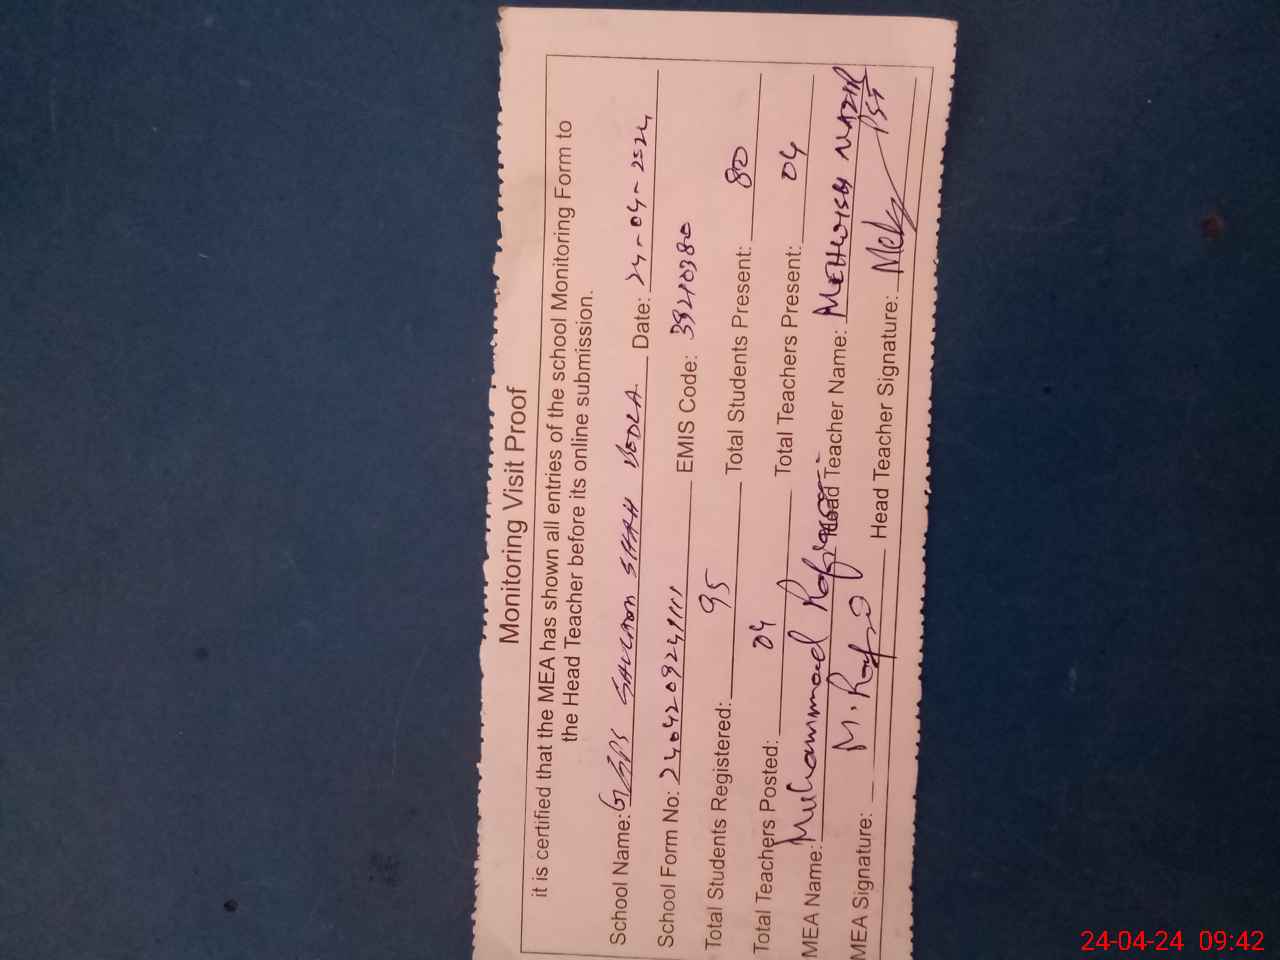 Monitoring Visit Proof
it is certified that the MEA has shown all entries of the school Monitoring Form to
the Head Teacher before its online submission.
School Name: SHAH Date: 24-04-2024
School Form No: EMIS Code: 39210380
Total Students Registered: 95 Total Students Present: 80
Total Teachers Posted: 04 Total Teachers Present: 04
MEA Name: Muhammad Head Teacher Name: MEHWISH NAZIR
MEA Signature: M. Rafiq Head Teacher Signature: PST
24-04-24 09:42